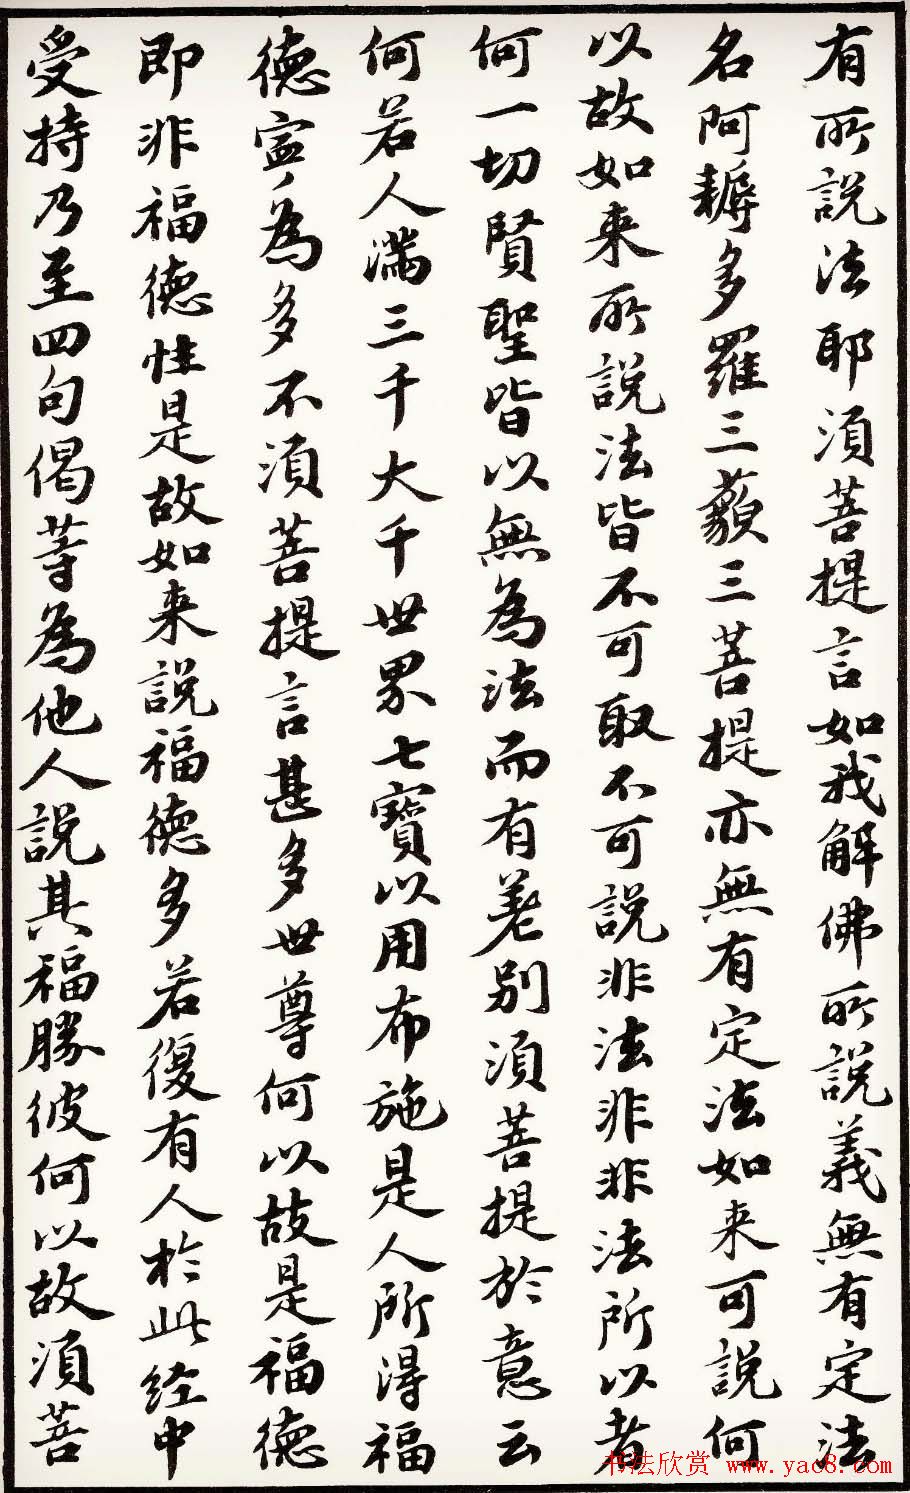 有所說法耶須菩提言如我解佛所說義無有定法
名阿耨多羅三藐三菩提亦無有定法如来可說何
以故如来所說法皆不可取不可說非法非非法所以者
何一切賢聖皆以無為法而有差别須菩提於意云
何若人滿三千大千世界七寶以用布施是人所得福
德寧為多不須菩提言甚多世尊何以故是福德
即非福德性是故如来說福德多若復有人於此经中
受持乃至四句偈等為他人說其福勝彼何以故須菩
书法欣赏 www.yac8.com